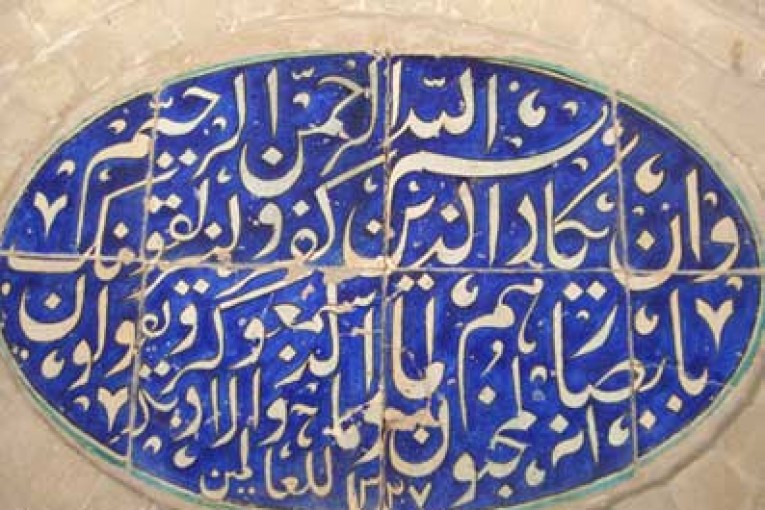 بسم الله الرحمن الرحيم
وان يكاد الذين كفروا ليزلقونك
بابصارهم لما سمعوا الذكر ويقولون
انه لمجنون وما هو الا ذكر
للعالمين ١٣٣٧